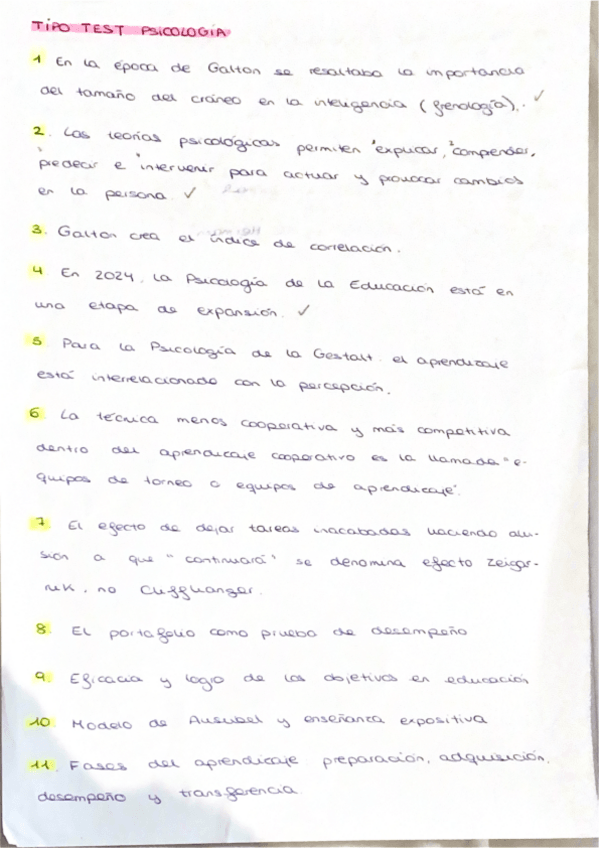 TIPO TEST PSICOLOGÍA
1 En la época de Galton se resaltaba la importancia
del tamaño del cráneo en la inteligencia (frenología). ✓
2. Las teorías psicológicas permiten ¹explicar, ²comprender,
³predecir e ⁴intervenir para actuar y provocar cambios
en la persona ✓
3. Galton crea el índice de correlación.
4 En 2024, la Psicología de la Educación está en
una etapa de expansión. ✓
5 Para la Psicología de la Gestalt el aprendizaje
está interrelacionado con la percepción.
6 La técnica menos cooperativa y más competitiva
dentro del aprendizaje cooperativo es la llamada "e-
quipos de torneo o equipos de aprendizaje".
7 El efecto de dejar tareas inacabadas haciendo alu-
sión a que "continuará" se denomina efecto Zeigar-
nik, no Cliffhanger.
8. El portafolio como prueba de desempeño
9. Eficacia y logro de los objetivos en educación
10 Modelo de Ausubel y enseñanza expositiva
11. Fases del aprendizaje preparación, adquisición,
desempeño y transferencia.